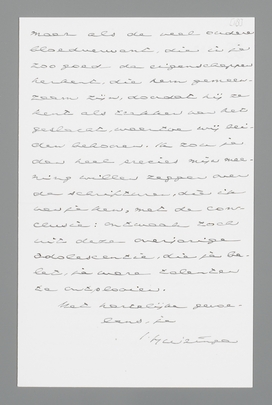 maar als de veel oudere
bloedverwant, die in je
zoo goed de eigenschappen
herkent, die hem gemeen-
zaam zijn, doordat hij ze
kent als trekken van het
geslacht, waartoe wij bei-
den behooren. Ik zou je
dan heel precies mijn mee-
ning willen zeggen over
de schrifturen, die ik
van je ken, met de con-
clusie: ontwaak toch
uit deze overjarige
adolescentie, die je be-
let, je ware talenten
te ontplooien.
Met hartelijke groe-
ten, je